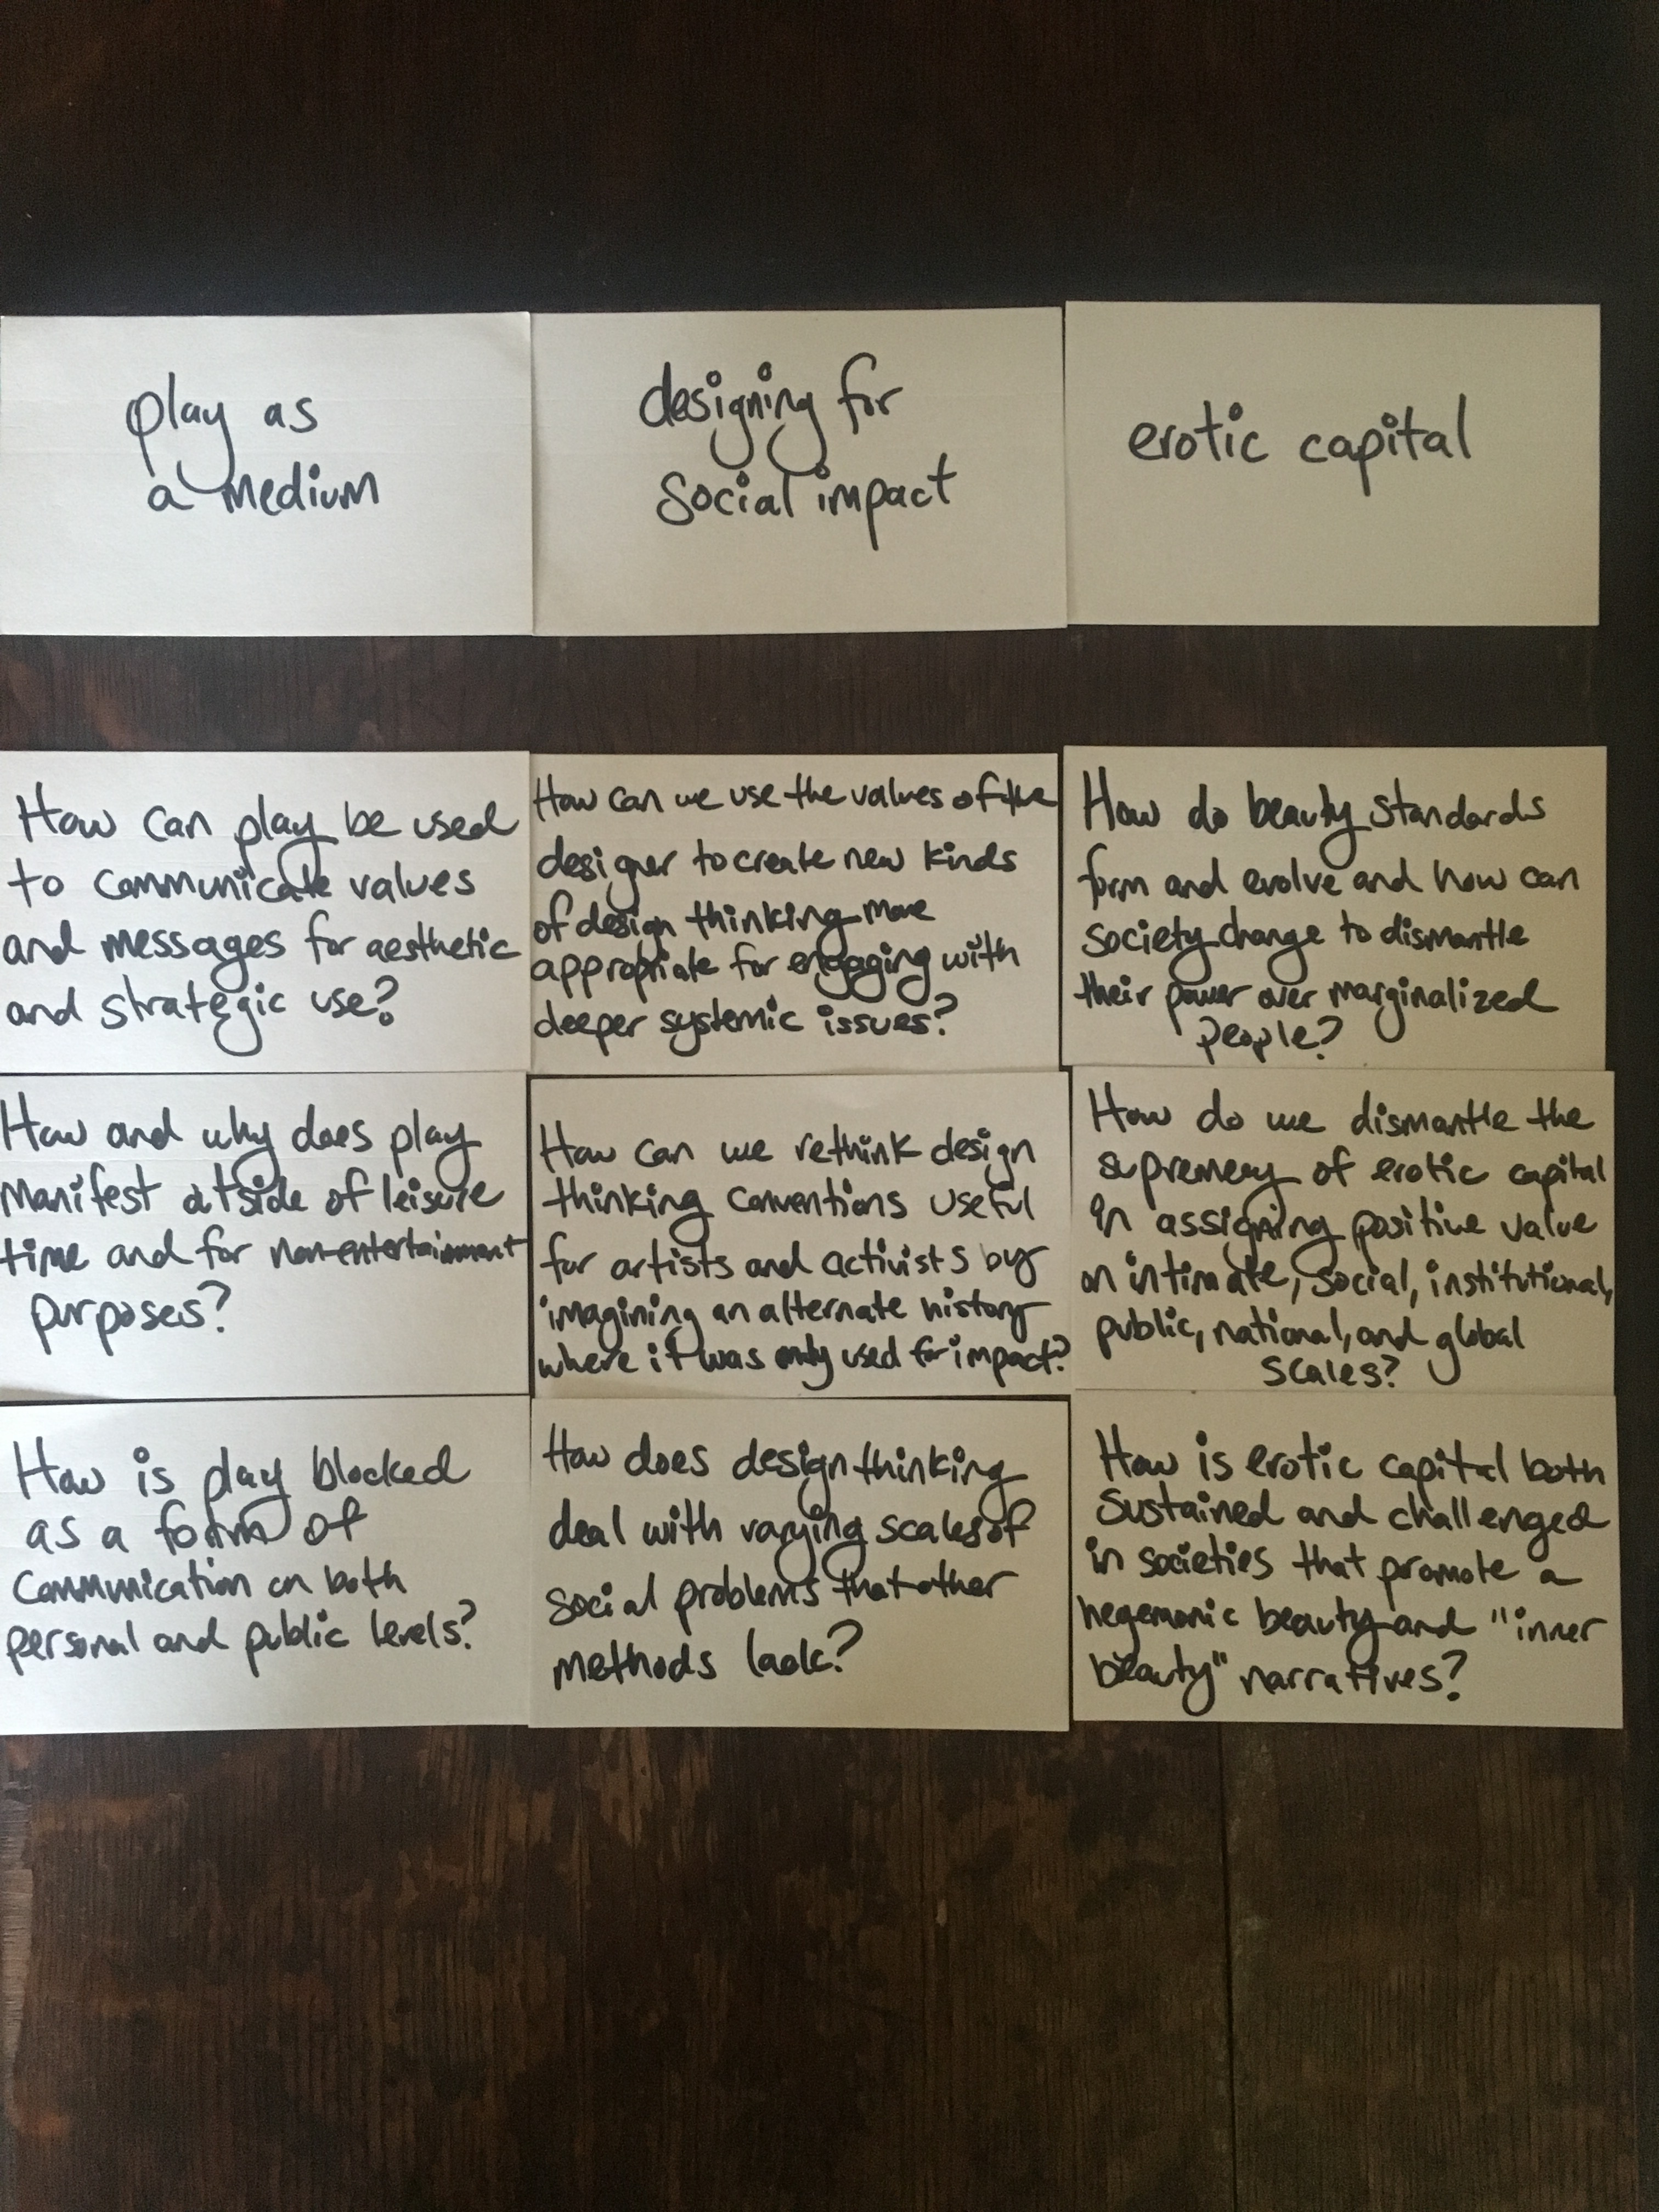 play as
a medium
designing for
social impact
erotic capital
How can play be used
to communicate values
and messages for aesthetic
and strategic use?
How can we use the values of the
designer to create new kinds
of design thinking more
appropriate for engaging with
deeper systemic issues?
How do beauty standards
form and evolve and how can
society change to dismantle
their power over marginalized
people?
How and why does play
manifest outside of leisure
time and for non-entertainment
purposes?
How can we rethink design
thinking conventions useful
for artists and activists by
imagining an alternate history
where it was only used for impact?
How do we dismantle the
supremecy of erotic capital
in assigning positive value
on intimate, social, institutional,
public, national, and global
scales?
How is play blocked
as a form of
communication on both
personal and public levels?
How does design thinking
deal with varying scales of
social problems that other
methods lack?
How is erotic capital both
sustained and challenged
in societies that promote a
hegemonic beauty and "inner
beauty" narratives?